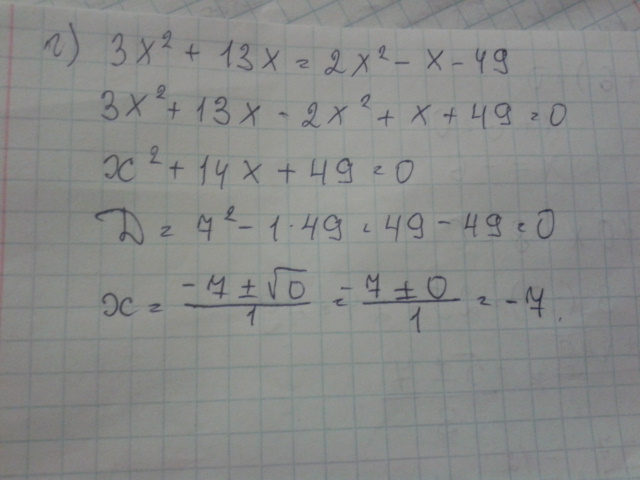 г) 3x² + 13x = 2x² - x - 49
3x² + 13x - 2x² + x + 49 = 0
x² + 14x + 49 = 0
D = 7² - 1·49 = 49 - 49 = 0
x = (-7 ± √0)/1 = (-7 ± 0)/1 = -7.